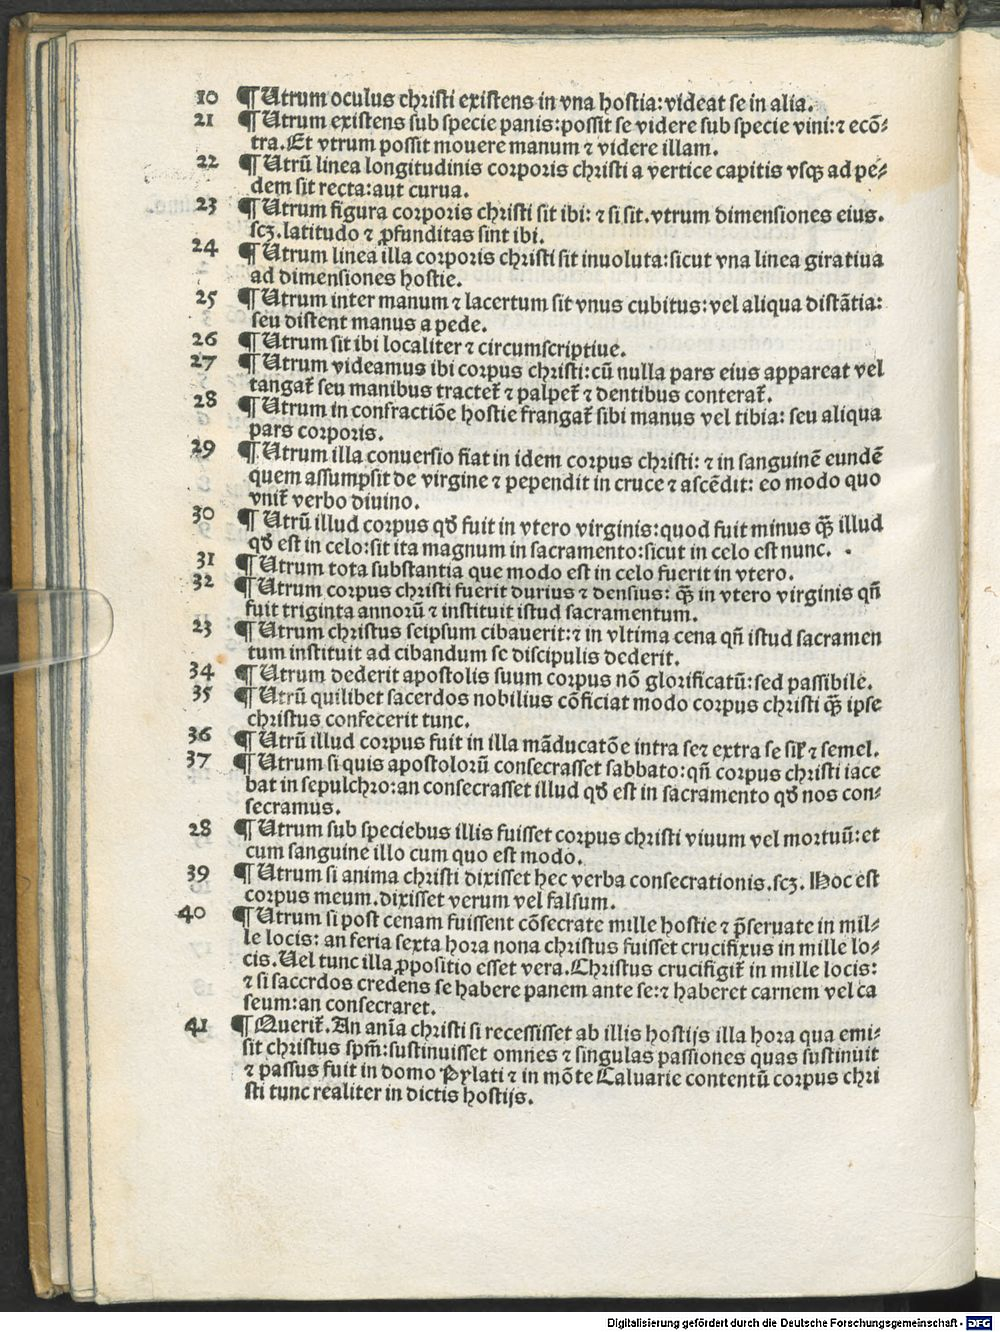 10 ¶ Utrum oculus christi existens in vna hostia: videat se in alia.
21 ¶ Utrum existens sub specie panis: possit se videre sub specie vini: ⁊ ecō⸗
tra. Et vtrum possit mouere manum ⁊ videre illam.
22 ¶ Utrū linea longitudinis corporis christi a vertice capitis vsqꝫ ad pe⸗
dem sit recta: aut curua.
23 ¶ Utrum figura corporis christi sit ibi: ⁊ si sit. vtrum dimensiones eius.
scꝫ. latitudo ⁊ ꝓfunditas sint ibi.
24 ¶ Utrum linea illa corporis christi sit inuoluta: sicut vna linea giratiua
ad dimensiones hostie.
25 ¶ Utrum inter manum ⁊ lacertum sit vnus cubitus: vel aliqua distātia:
seu distent manus a pede.
26 ¶ Utrum sit ibi localiter ⁊ circumscriptiue.
27 ¶ Utrum videamus ibi corpus christi: cū nulla pars eius appareat vel
tangat᷑ seu manibus tractet᷑ ⁊ palpet᷑ ⁊ dentibus conterat᷑.
28 ¶ Utrum in confractiōe hostie frangat᷑ sibi manus vel tibia: seu aliqua
pars corporis.
29 ¶ Utrum illa conuersio fiat in idem corpus christi: ⁊ in sanguinē eundē
quem assumpsit de virgine ⁊ pependit in cruce ⁊ ascēdit: eo modo quo
vnit᷑ verbo diuino.
30 ¶ Utrū illud corpus qď fuit in vtero virginis: quod fuit minus q̄ꝫ illud
qď est in celo: sit ita magnum in sacramento: sicut in celo est nunc.
31 ¶ Utrum tota substantia que modo est in celo fuerit in vtero.
32 ¶ Utrum corpus christi fuerit durius ⁊ densius: q̄ꝫ in vtero virginis qn̄
fuit triginta annorū ⁊ instituit istud sacramentum.
23 ¶ Utrum christus seipsum cibauerit: ⁊ in vltima cena qn̄ istud sacramen
tum instituit ad cibandum se discipulis dederit.
34 ¶ Utrum dederit apostolis suum corpus nō glorificatū: sed passibile.
35 ¶ Utrū quilibet sacerdos nobilius cōficiat modo corpus christi q̄ꝫ ipse
christus confecerit tunc.
36 ¶ Utrū illud corpus fuit in illa māducatōe intra se⁊ extra se sil᷑ ⁊ semel.
37 ¶ Utrum si quis apostolorū consecrasset sabbato: qn̄ corpus christi iace
bat in sepulchro: an consecrasset illud qď est in sacramento qď nos con⸗
secramus.
28 ¶ Utrum sub speciebus illis fuisset corpus christi viuum vel mortuū: et
cum sanguine illo cum quo est modo.
39 ¶ Utrum si anima christi dixisset hec verba consecrationis. scꝫ. Hoc est
corpus meum. dixisset verum vel falsum.
40 ¶ Utrum si post cenam fuissent cōsecrate mille hostie ⁊ p̄seruate in mil⸗
le locis: an feria sexta hora nona christus fuisset crucifixus in mille lo⸗
cis. Uel tunc illa ꝓpositio esset vera. Christus crucifigit᷑ in mille locis:
⁊ si sacerdos credens se habere panem ante se: ⁊ haberet carnem vel ca
seum: an consecraret.
41 ¶ Querit᷑. An anīa christi si recessisset ab illis hostijs illa hora qua emi⸗
sit christus spm̄: sustinuisset omnes ⁊ singulas passiones quas sustinuit
⁊ passus fuit in domo Pylati ⁊ in mōte Caluarie contentū corpus chri
sti tunc realiter in dictis hostijs.
Digitalisierung gefördert durch die Deutsche Forschungsgemeinschaft - DFG